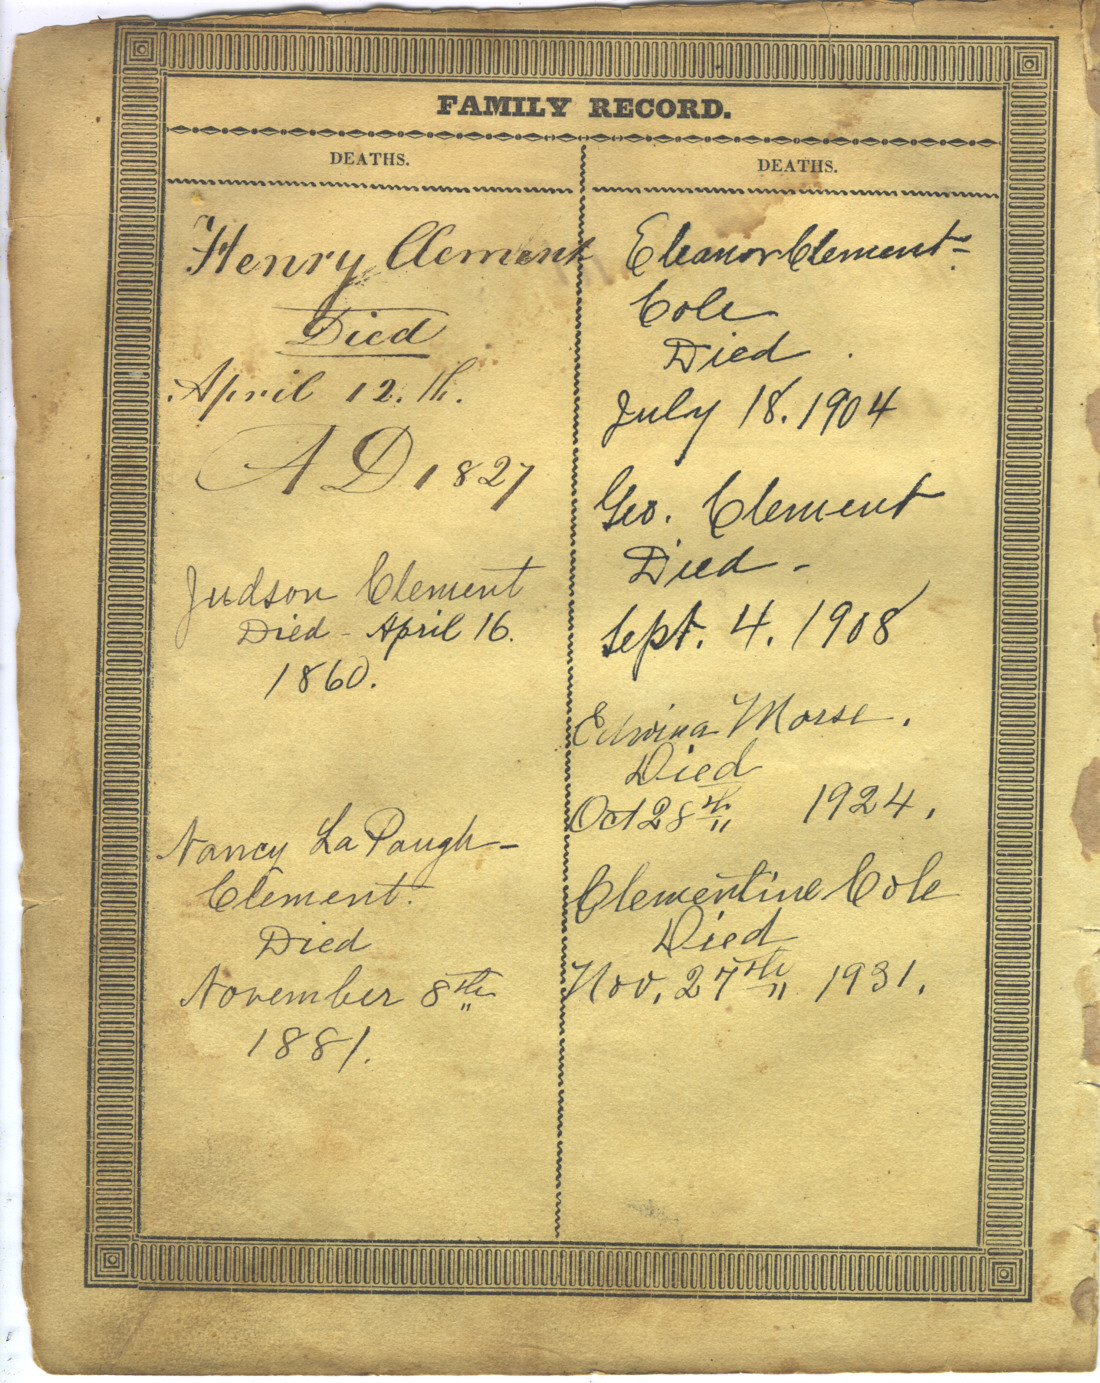 FAMILY RECORD.
DEATHS.
Henry Clement
Died
April 12.th.
A D 1827
Judson Clement
Died - April 16.
1860.
Nancy La Paugh-
Clement.
Died
November 8th
1881.
DEATHS.
Eleanor Clement-
Cole
Died
July 18. 1904
Geo. Clement
Died -
Sept. 4. 1908
Edwina Morse.
Died
Oct 28th 1924.
Clementine Cole
Died
Nov. 27th 1931.